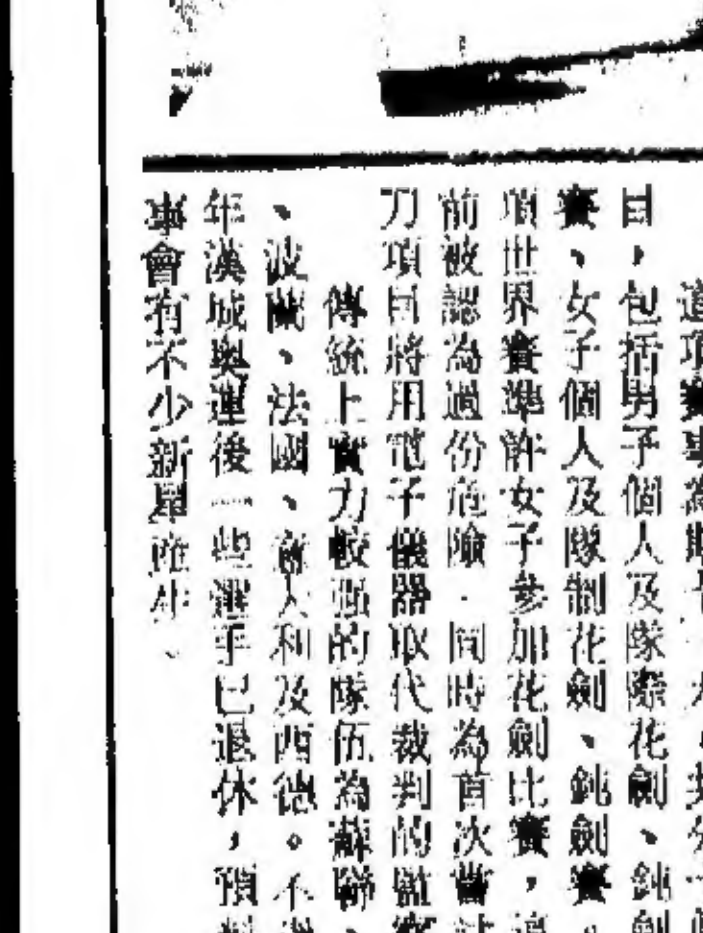 這項賽事為期十一天，共分一個
目，包括男子個人及隊際花劍、鈍劍
賽、女子個人及隊制花劍、鈍劍賽。
項世界賽準許女子參加花劍比賽，這
前被認為過份危險．同時為首次嘗試
刀項目將用電子儀器取代裁判的監察
傳統上實力較强的隊伍為蘇聯、
、波蘭、法國、意大利及西德。不過
年漢城奧運後一些選手已退休，預料
事會有不少新星產生、